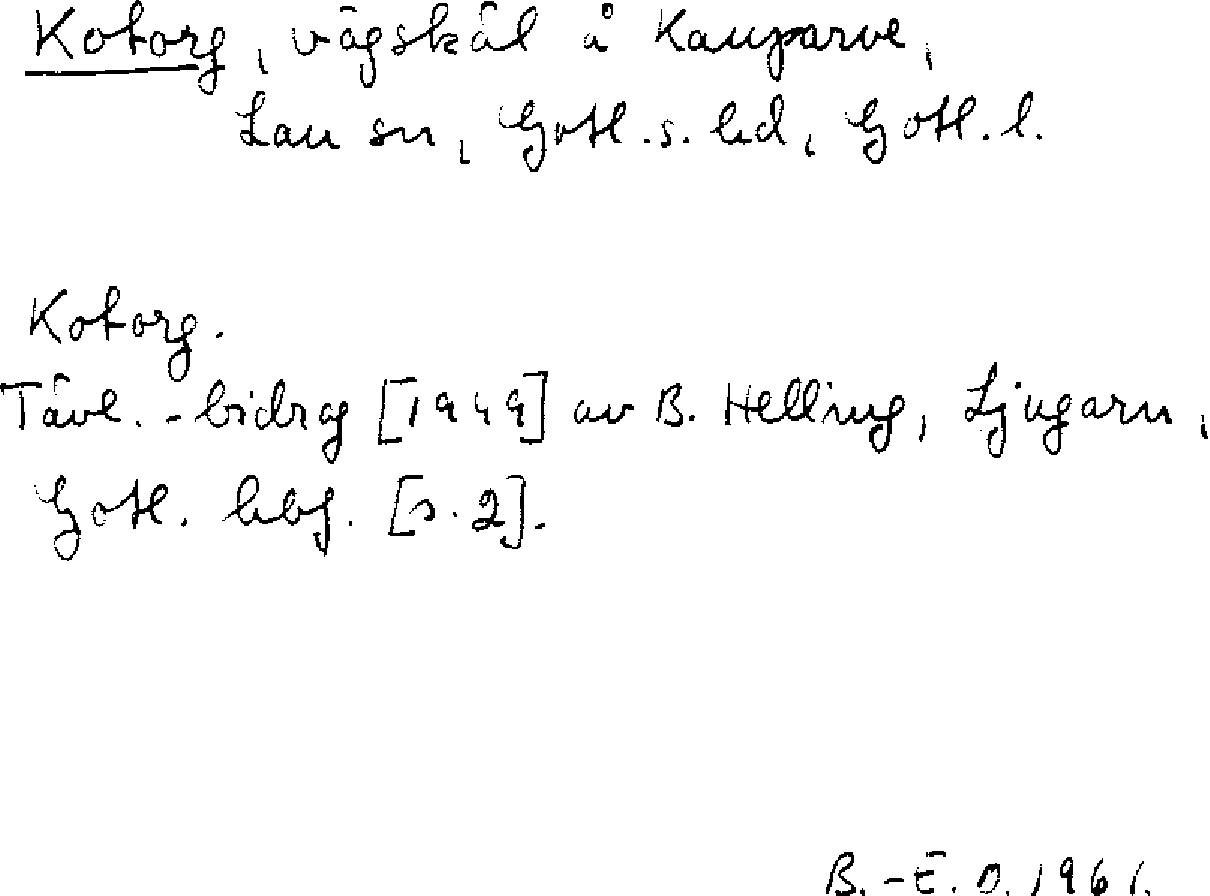 Kotorg, vägskäl å Kauparve,
Lau sn, Gotl. s. hd, Gotl. l.
Kotorg.
Tävl.-bidrag [1949] av B. Helling, Ljugarn,
Gotl. hbf. [s. 2].
B.-E. O. 1961.